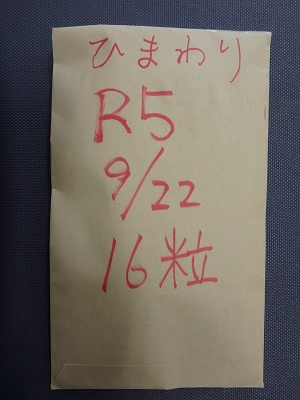 ひまわり
R5
9/22
16粒